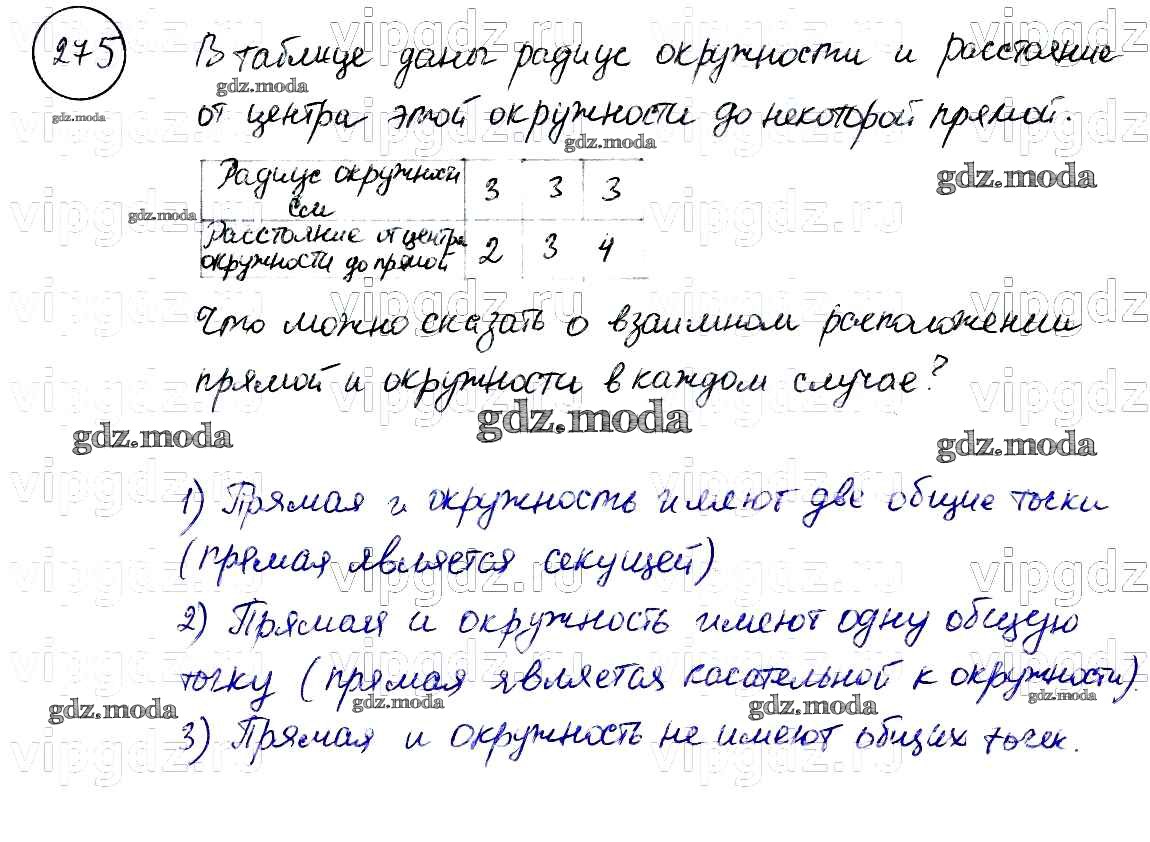 275
В таблице даны радиус окружности и расстояние
от центра этой окружности до некоторой прямой.
Радиус окружности см 3 3 3
Расстояние от центра окружности до прямой 2 3 4
Что можно сказать о взаимном расположении
прямой и окружности в каждом случае?
1) Прямая и окружность имеют две общие точки
(прямая является секущей)
2) Прямая и окружность имеют одну общую
точку (прямая является касательной к окружности).
3) Прямая и окружность не имеют общих точек.
gdz.moda
vipgdz.ru